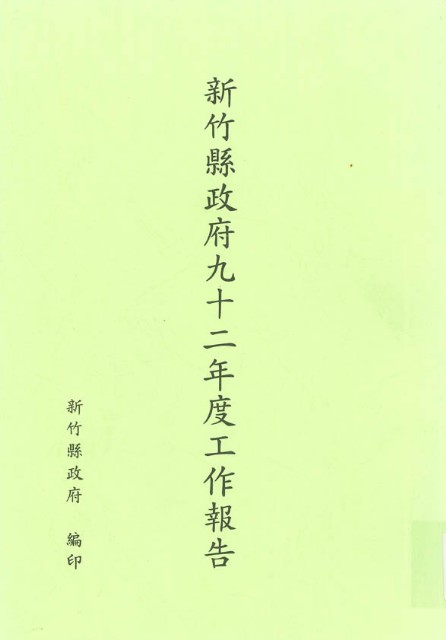 新竹縣政府九十二年度工作報告
新竹縣政府 編印